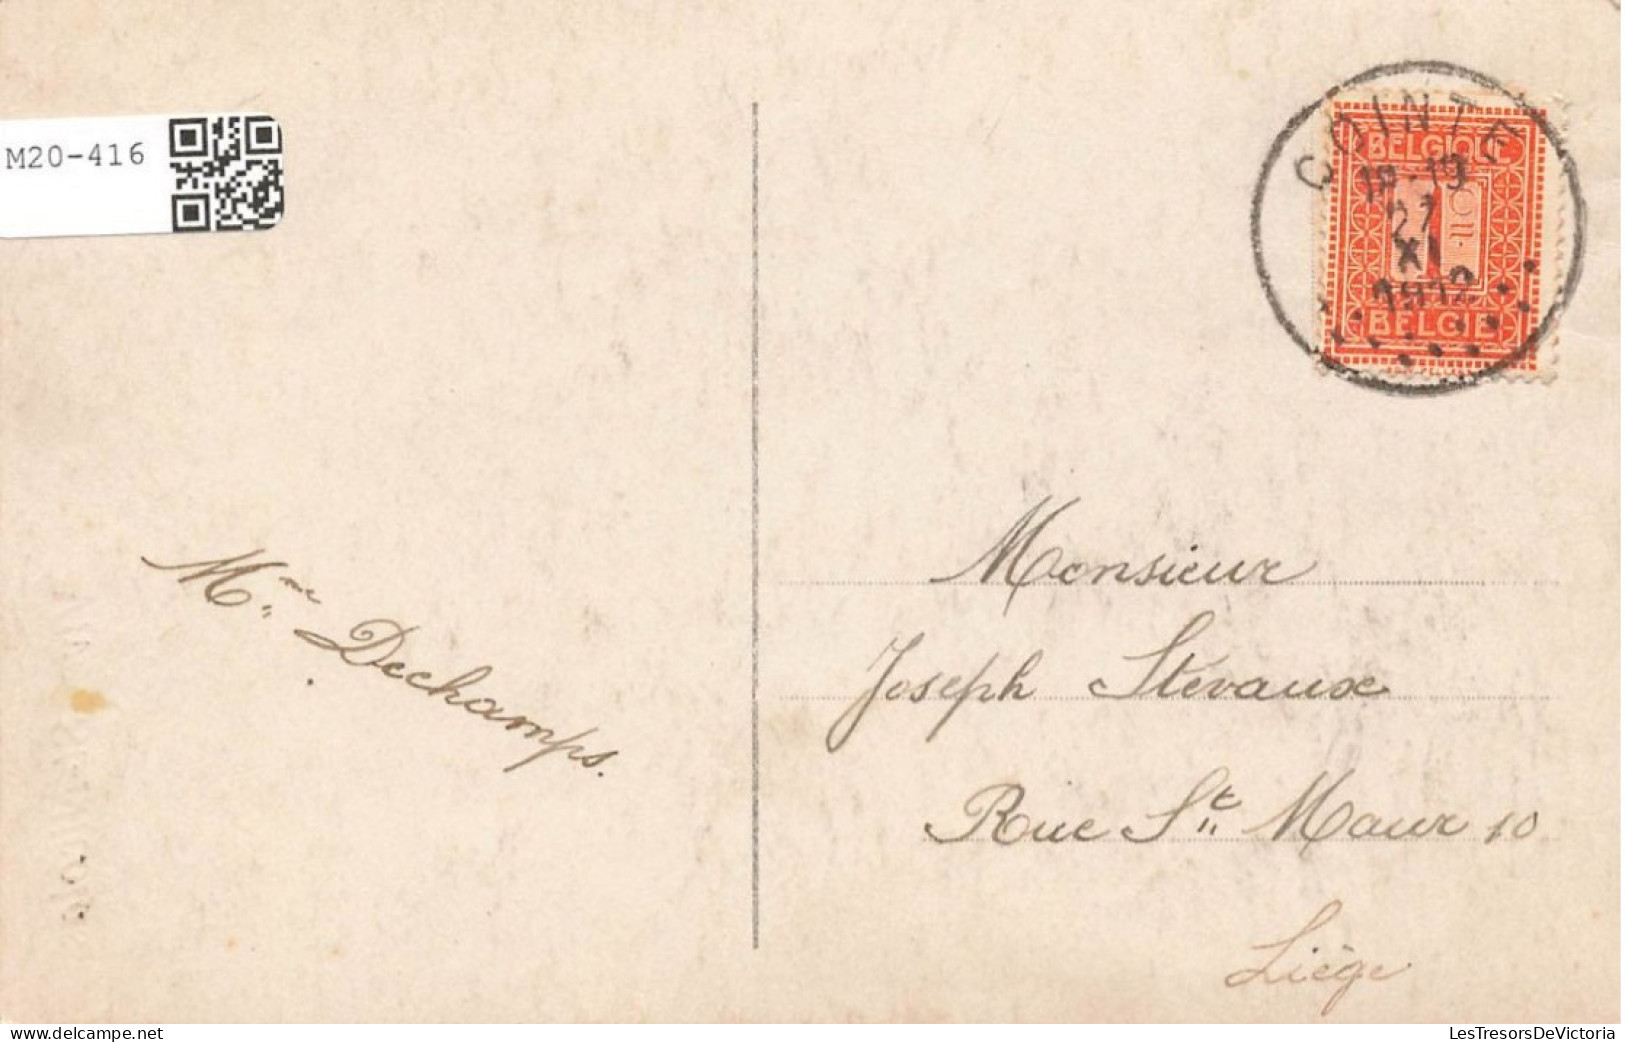 M20-416
COINTE
BELGIQUE
18-19
27
XI
1912
1
BELGIE
Monsieur
Mme Dechamps.
Joseph Stévaux
Rue St Maur 10
Liège
www.delcampe.net
LesTresorsDeVictoria